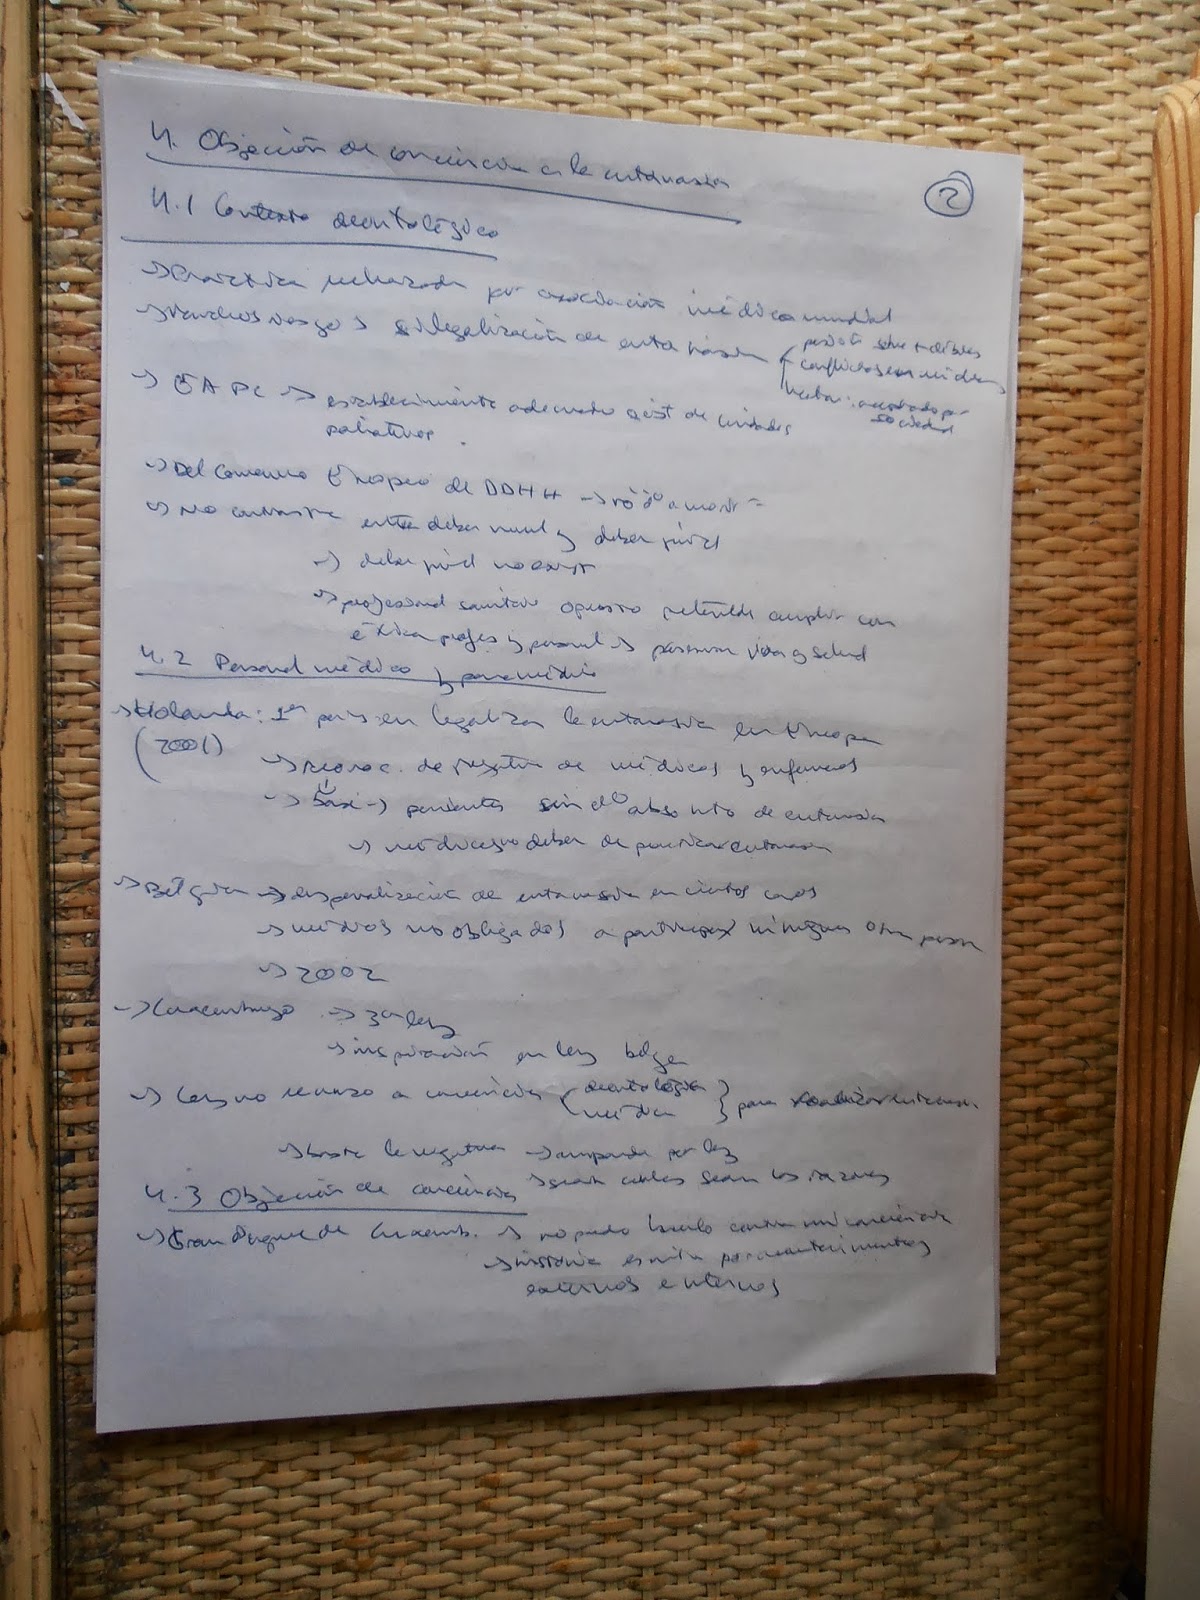 4. Objeción de conciencia a la eutanasia
2
4.1 Contexto deontológico
→ Práctica rechazada por asociación médica mundial
→ Muchos riesgos si legalización de eutanasia
presión sobre + débiles
conflictos con médicos
aceptado por
sociedad
→ EAPC → establecimiento adecuado sist de cuidados
paliativos.
→ Del Convenio Europeo de DDHH → no dº a morir
→ No contraste entre deber moral y deber jurid
→ deber jurid no exist
→ profesional sanitario opuesto pretende cumplir con
ética profes y personal → preservar vida y salud
4.2 Personal médico y paramédico
→ Holanda: 1er país en legalizar la eutanasia en Europa
(2001)
→ reconoc. de negativa de médicos y enfermeros
→ base → pacientes sin dº absoluto de eutanasia
→ médicos no deber de practicar eutanasia
→ Bélgica → despenalización de eutanasia en ciertos casos
→ médicos no obligados a participar ni ninguna otra person
→ 2002
→ Luxemburgo → 3ª ley
→ inspiración en ley belga
→ Ley no recurso a conciencia
deontológica
médica
para realizar eutanasia
→ basta la negativa → amparada por ley
→ sean cuales sean las razones
4.3 Objeción de conciencia
→ Gran Duque de Luxemb. → no puedo hacerlo contra mi conciencia
→ historia escrita por acontecimientos
externos e internos